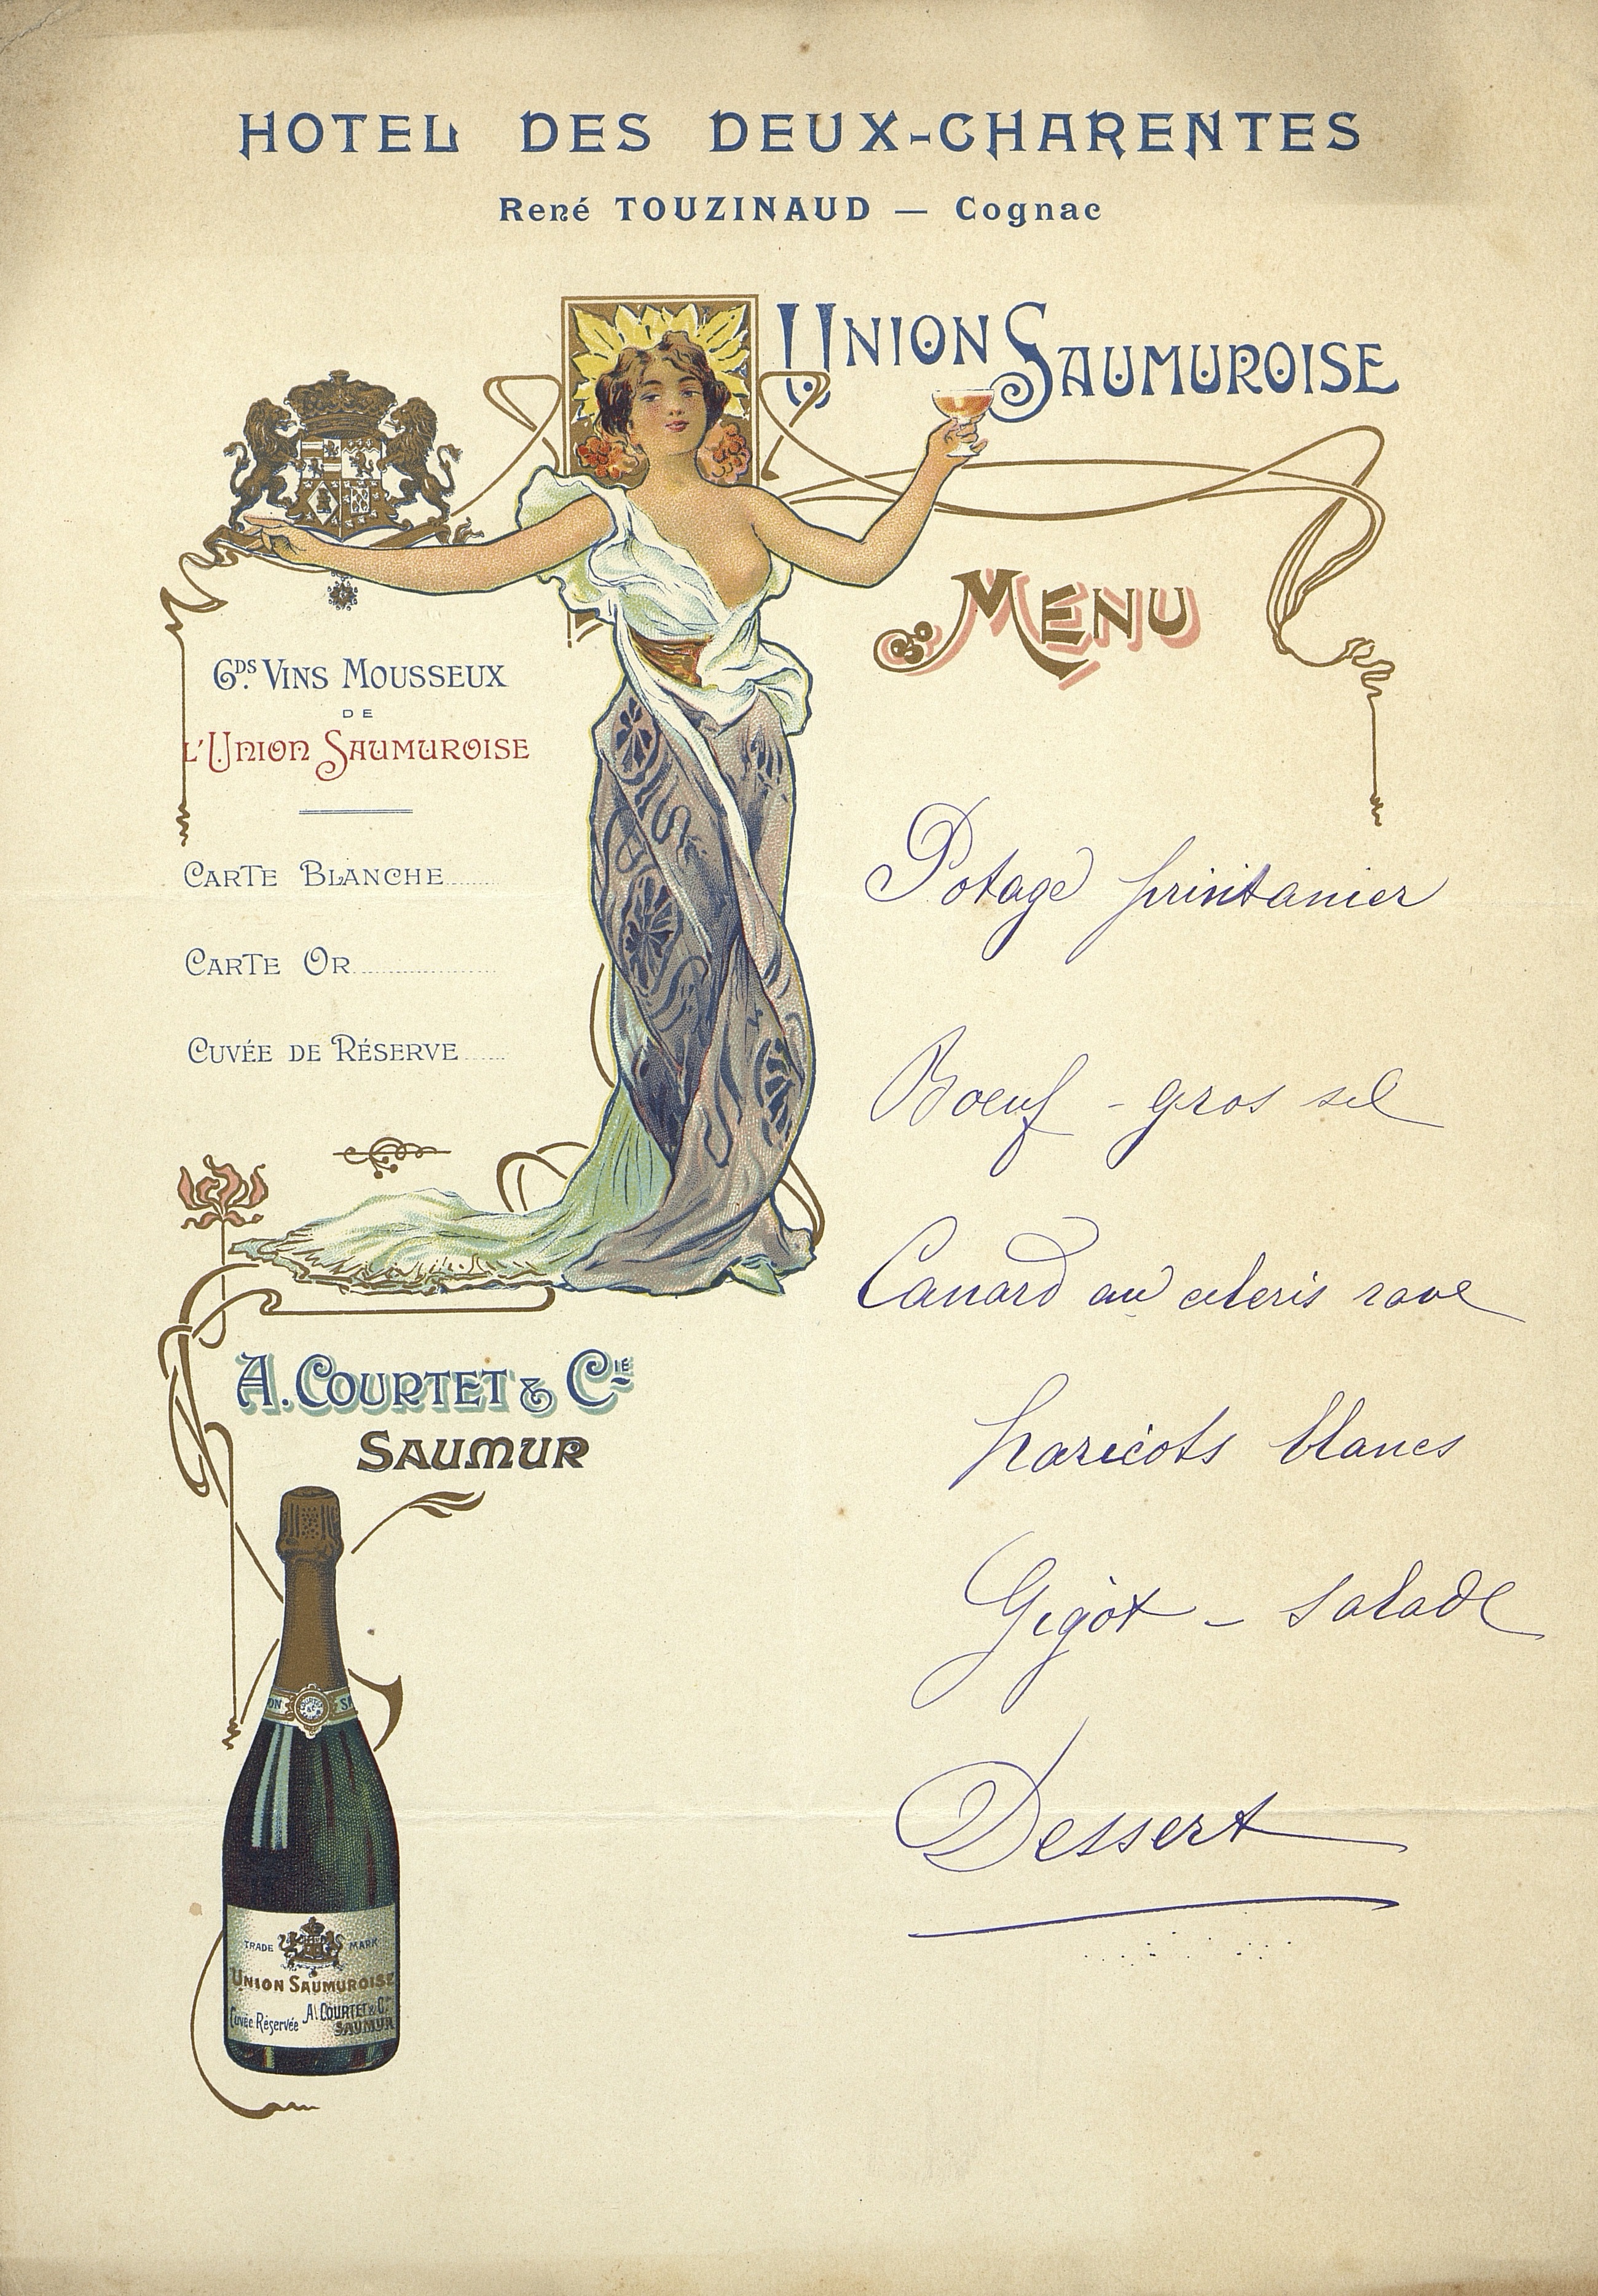 HOTEL DES DEUX-CHARENTES
René TOUZINAUD — Cognac
UNION SAUMUROISE
MENU
Gds. VINS MOUSSEUX
DE
L'UNION SAUMUROISE
CARTE BLANCHE
CARTE OR
CUVÉE DE RÉSERVE
A. COURTET & Cie
SAUMUR
ON SA
TRADE MARK
UNION SAUMUROISE
Cuvée Réservée A. COURTET & Cie
SAUMUR
Potage printanier
Boeuf - gros sel
Canard au celeris rave
haricots blancs
Gigot - salade
Dessert